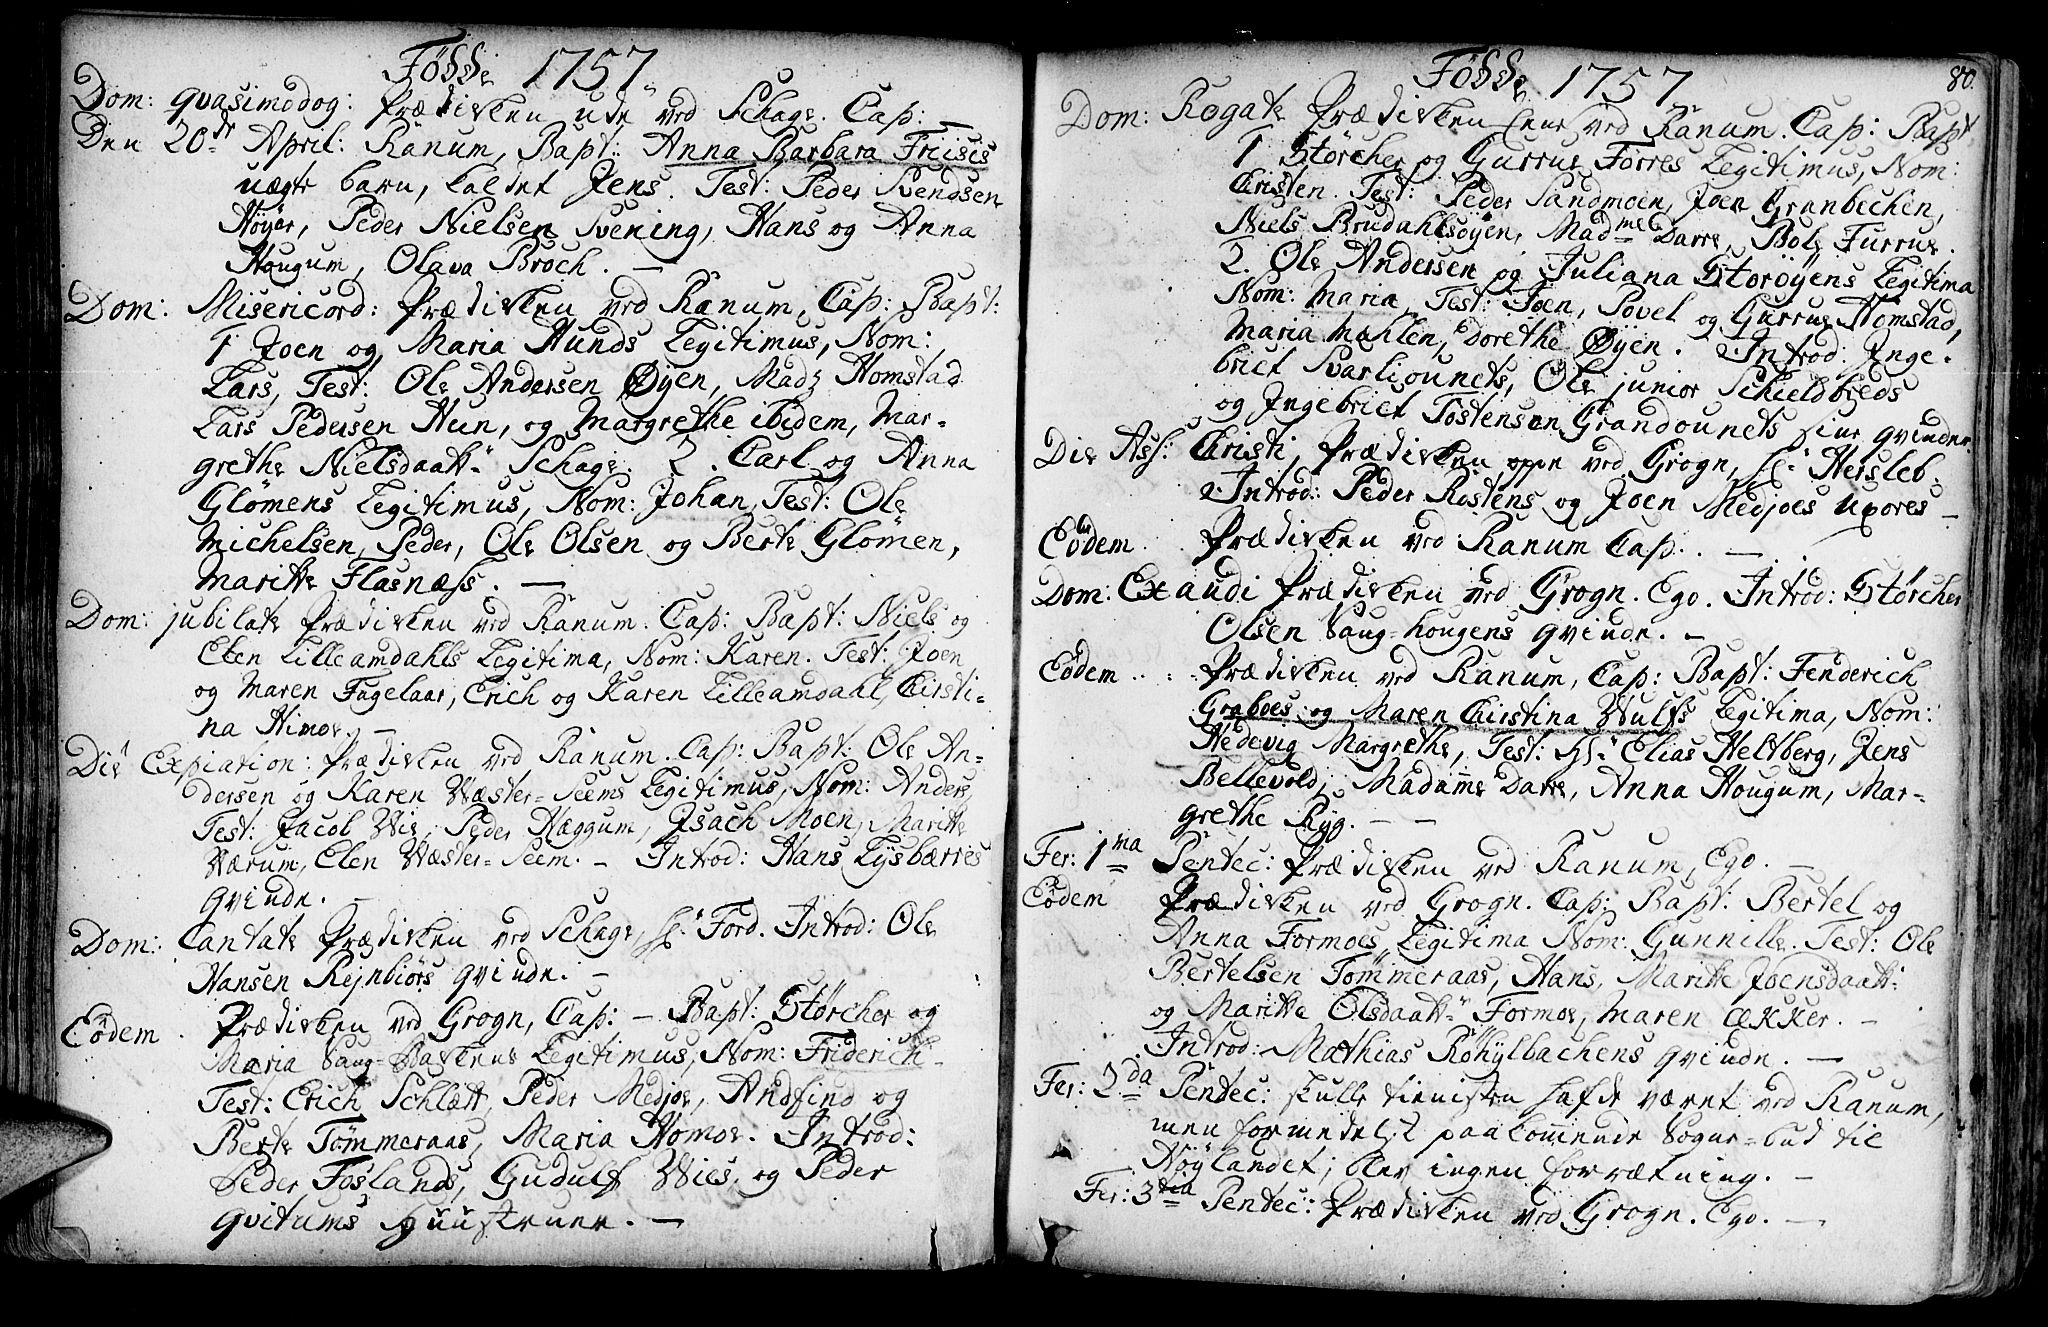 Födde 1757
Dom: qvasimodog: Prædiken ude ved Schage. Cap: —
Den 20de April: Ranum, Bapt: Anna Barbara Friises
uægte barn, kaldet Jens. Test: Peder Svendsen
Höyer, Peder Nielsen Svening, Hans og Anna
Hougum, Olava Broch. —
Dom: Misericord: Prædiken ved Ranum, Cap: Bapt:
1 Joen og Maria Hunds Legitimus, Nom:
Lars, Test: Ole Andersen Øyen, Madz Homstad
Lars Pedersen Hun, og Margrethe ibidem, Mar-
grethe Nielsdaatt. Schage. 2. Carl og Anna
Glömens Legitimus, Nom: Johan, Test: Ole
Michelsen, Peder, Ole Olsen og Berte Glömen,
Maritte Flasnæss. —
Dom: jubilate Prædiken ved Ranum. Cap: Bapt: Niels og
Elen Lilleamdahls Legitima, Nom: Karen. Test: Joen
og Maren Fagelaar, Erich og Karen Lilleamdahl, Christi-
na Himoe. —
Die Expiation: Prædiken ved Ranum. Cap: Bapt: Ole An-
dersen og Karen Wæster-Seems Legitimus, Nom: Anders,
Test: Jacob Wie, Peder Hæggum, Isach Moen, Maritte
Wærum, Elen Wæster-Seem. — Introd: Hans Lysbærres
qvinde.
Dom: Cantate Prædiken ved Schage, Hr. Ford. Introd: Ole
Hansen Rejnbiörs qvinde. —
Eödem. Prædiken ved Grogn, Cap: — Bapt: Størcher og
Maria Saug-Baskens Legitimus, Nom: Friderich.
Test: Erich Schlætt, Peder Medjoe, Andfind og
Berte Tömmeraas, Maria Homoe. Introd:
Peder Foslands, Gudulf Wies, og Peder
Qvitums Huustruer. —
Födde 1757
80.
Dom: Rogate Prædiken ved Ranum. Cap: Bapt
1 Størcher og Gurrue Forres Legitimus, Nom:
Christen. Test: Peder Sandmoen, Joen Grønbechen,
Niels Brudahlsöyen, Madme Darre, Bole Furrue.
2. Ole Andersen og Juliana Storöyens Legitima
Nom: Maria, Test: Joen, Povel og Gurrue Homstad,
Maria Mahlen, Dorethe Øyen. Introd: Inge-
briet Svarliounets, Ole junior Schieldbreds
og Ingebriet Tostensen Grandounets sine qvinder.
Die Ass: Christi, Prædiken oppe ved Grogn, Hr. Hersleb.
Introd: Peder Rostens og Joen Medjoes uxores —
Eödem. Prædiken ved Ranum Cap. —
Dom: Exaudi Prædiken ved Grogn. Ego. Introd: Størcher
Olsen Saug-hougens qvinde. —
Eödem .. Prædiken ved Ranum, Cap: Bapt: Fenderich
Graboes og Maren Christina Wulfs Legitima, Nom:
Hedevig Margrethe, Test: Hr. Elias Heltberg, Jens
Bellevold, Madamme Darre, Anna Hougum, Mar-
grethe Ryg. — —
Fer: 1ma Pentec: Prædiken ved Ranum, Ego. —
Eödem Prædiken ved Grogn. Cap: Bapt: Bertel og
Anna Formoes Legitima Nom: Gunnille. Test: Ole
Bertelsen Tömmeraas, Hans, Maritte Joensdaatt.
og Maritte Olsdaatt. Formoe, Maren Ækker. —
Introd: Mathias Röhylbachens qvinde. —
Fer: 2da Pentec: skulle tienisten hafde været ved Ranum,
men formedelst paakommende Sogne-bud til
Höylandet, blev ingen forrætning. —
Fer: 3tia Pentec: Prædiken ved Grogn. Ego. —